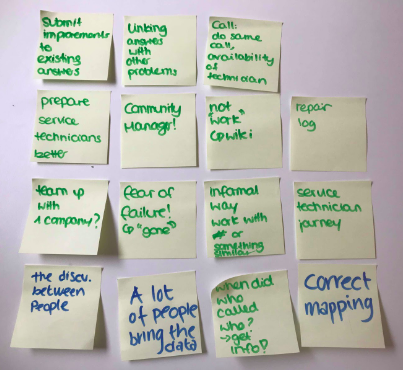 Submit
improvements
to
existing
answers
Linking
answers
with
other
problems
Call:
do same
call,
availability
of
technician
prepare
service
technicians
better
Community
Manager!
not
work
wiki
repair
log
team up
with
1 company?
fear of
failure!
"gone"
informal
way
work with
# or
something
similar
service
technician
journey
the discu.
between
People
A lot
of people
bring the
data
when did
who
called
who?
→ get
info?
Correct
mapping